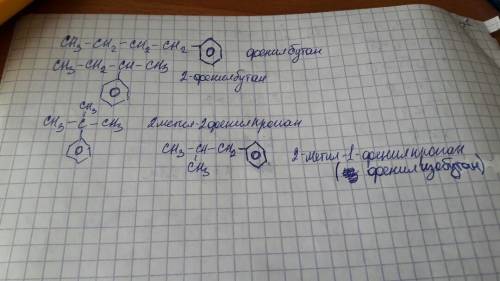 CH₃-CH₂-CH₂-CH₂- фенилбутан
CH₃-CH₂-CH-CH₃
2-фенилбутан
CH₃
CH₃-C-CH₃ 2метил-2фенилпропан
CH₃-CH-CH₂- 2-метил-1-фенилпропан
CH₃ (фенилизобутан)